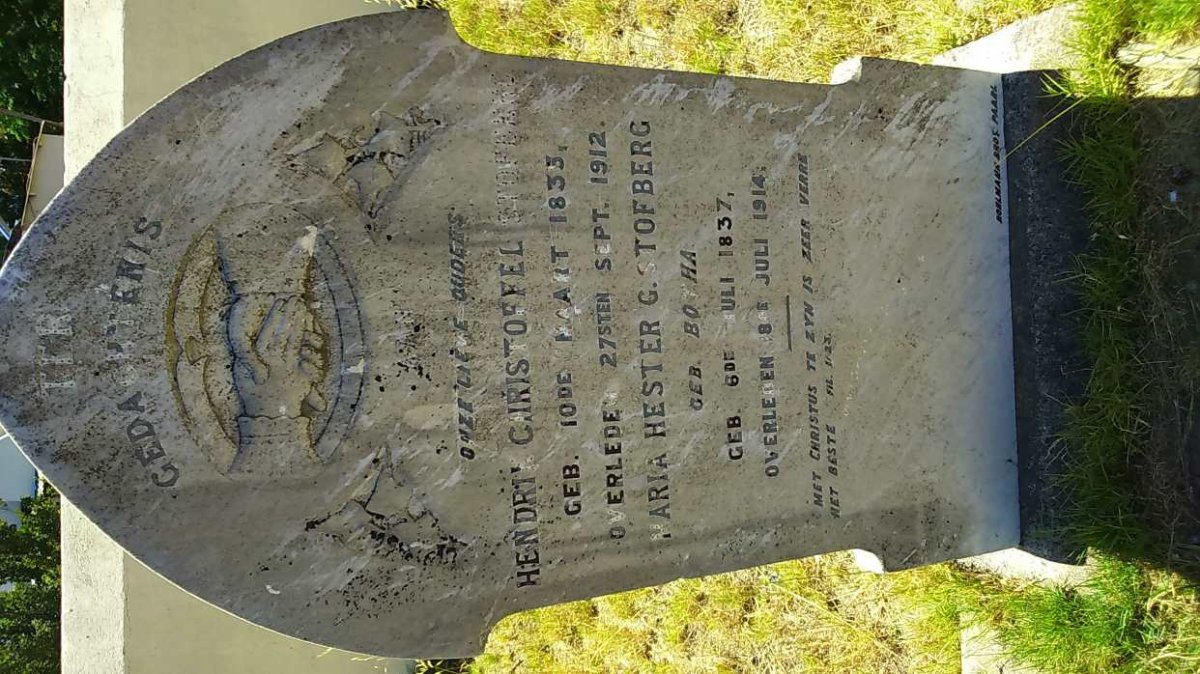 TER
GEDACHTENIS
ONZER LIEVE OUDERS
HENDRIK CHRISTOFFEL STOFBERG
GEB. 10DE MAART 1833,
OVERLEDEN 27STEN SEPT. 1912.
MARIA HESTER G. STOFBERG
GEB. BOTHA
GEB. 6DE JULI 1837,
OVERLEDEN 18DE JULI 1914.
MET CHRISTUS TE ZYN IS ZEER VERRE
HET BESTE FIL. 1:23.
BROS PAARL